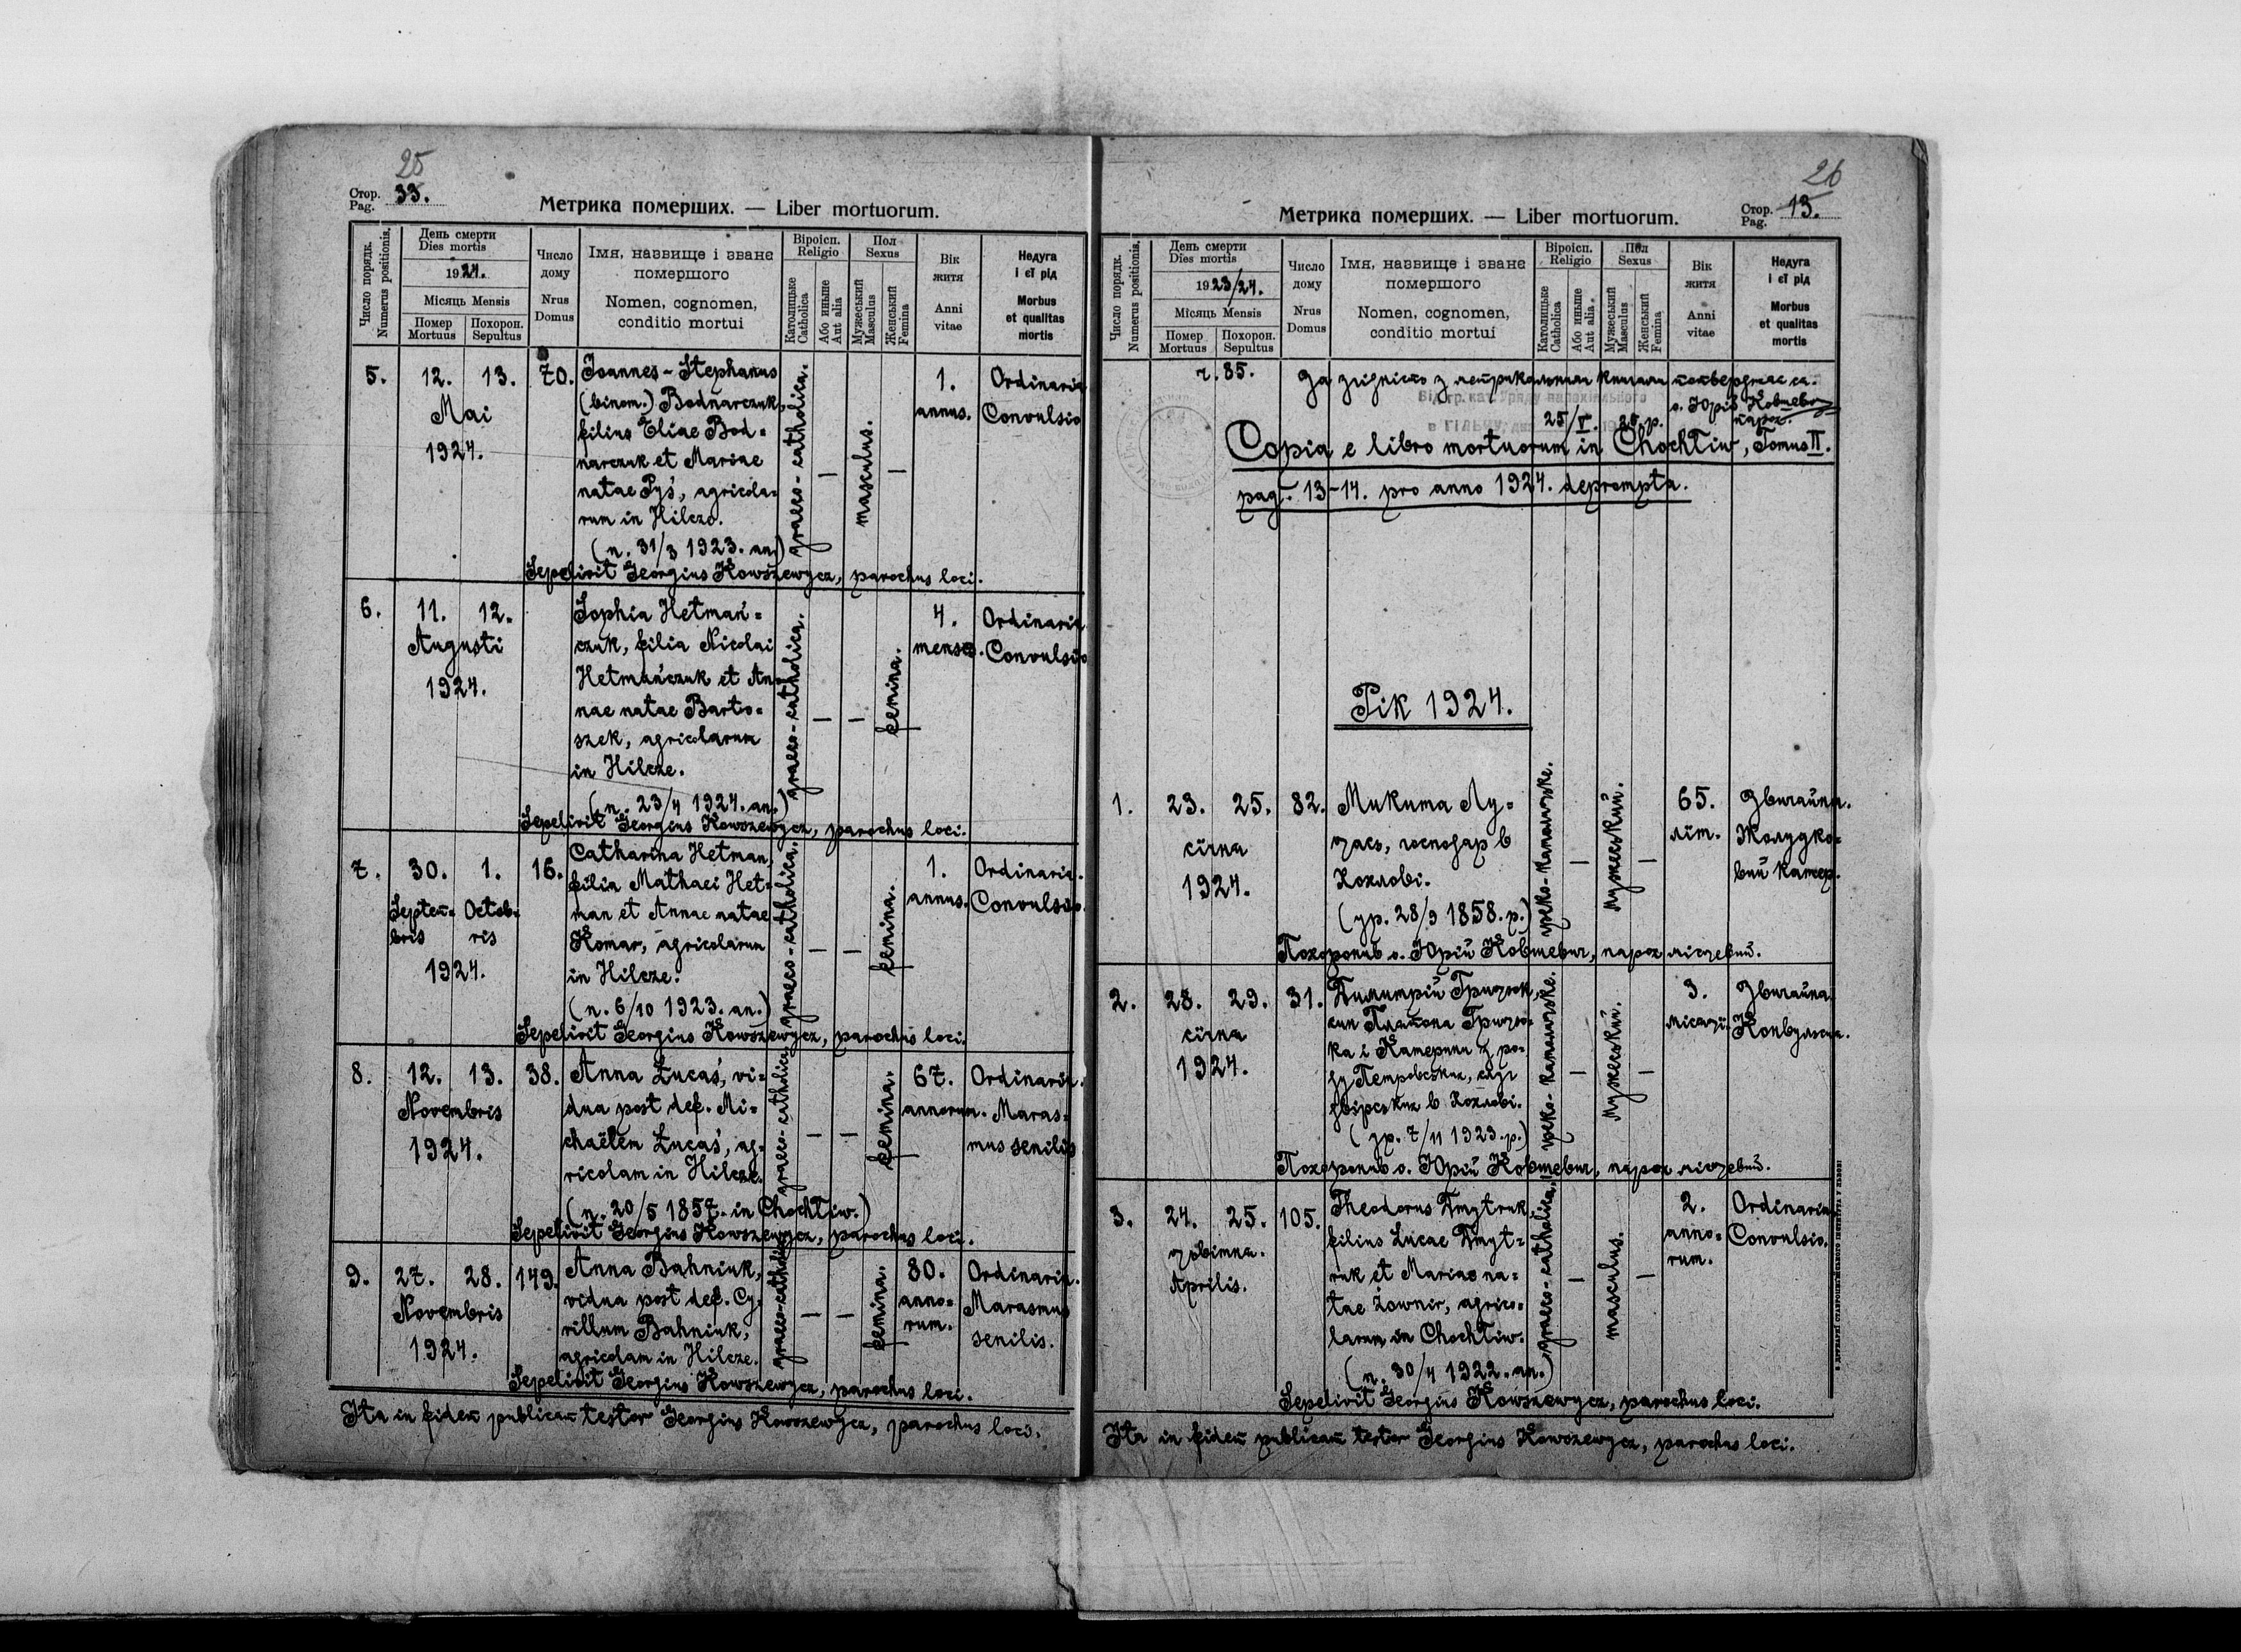 25
Стор.
Pag. 33.
Метрика померших. — Liber mortuorum.
Число порядк.
Numerus positionis.
День смерти
Dies mortis
1924.
Місяць Mensis
Помер
Mortuus
Похорон.
Sepultus
Число
дому
Nrus
Domus
Імя, назвище і званє
помершого
Nomen, cognomen,
conditio mortui
Віроісп.
Religio
Католицьке
Catholica
Або инньше
Aut alia
Пол
Sexus
Мужеський
Masculus
Женський
Femina
Вік
життя
Anni
vitae
Недуга
і єї рід
Morbus
et qualitas
mortis
5. 12. 13. 70.
Mai
1924.
Joannes-Stephanus
(binom.) Bodnarczuk,
filius Eliae Bod=
narczuk et Mariae
natae Pyś, agricola=
rum in Hilcze.
(n. 31/3 1923. an.)
graeco-catholica.
—
masculus.
—
1.
annus.
Ordinaria
Convulsio
Sepelivit Georgius Kowszewycz, parochus loci.
6. 11. 12.
Augusti
1924.
Sophia Hetmań=
czuk, filia Nicolai
Hetmańczuk et An=
nae natae Barto=
szek, agricolarum
in Hilcze.
(n. 23/4 1924. an.)
graeco-catholica.
— —
femina.
4.
menses.
Ordinaria
Convulsio
Sepelivit Georgius Kowszewycz, parochus loci.
7. 30. 1. 16.
Septem= Octob=
bris ris
1924.
Catharina Hetman,
filia Mathaei Het=
man et Annae natae
Komar, agricolarum
in Hilcze.
(n. 6/10 1923. an.)
graeco-catholica.
— —
femina.
1.
annus.
Ordinaria.
Convulsio.
Sepelivit Georgius Kowszewycz, parochus loci.
8. 12. 13. 38.
Novembris
1924.
Anna Łucaś, vi=
dua post def. Mi=
chaëlem Łucaś, ag=
ricolam in Hilcze.
(n. 20/5 1857. in Chochłiw.)
graeco-catholica
— —
femina.
67.
annorum.
Ordinaria.
Maras=
mus senilis
Sepelivit Georgius Kowszewycz, parochus loci.
9. 27. 28. 149.
Novembris
1924.
Anna Bahniuk,
vidua post def. Cy=
rillum Bahniuk,
agricolam in Hilcze.
graeco-catholica
— —
femina.
80.
anno=
rum.
Ordinaria.
Marasmus
senilis.
Sepelivit Georgius Kowszewycz, parochus loci.
Ita in fidem publicam testor Georgius Kowszewycz, parochus loci.
26
Стор.
Pag. 13.
Метрика померших. — Liber mortuorum.
Число порядк.
Numerus positionis.
День смерти
Dies mortis
1923/24.
Місяць Mensis
Помер
Mortuus
Похорон.
Sepultus
Число
дому
Nrus
Domus
Імя, назвище і званє
помершого
Nomen, cognomen,
conditio mortui
Віроісп.
Religio
Католицьке
Catholica
Або инньше
Aut alia
Пол
Sexus
Мужеський
Masculus
Женський
Femina
Вік
життя
Anni
vitae
Недуга
і єї рід
Morbus
et qualitas
mortis
ч. 85. За згідність з метрикальними книгами потверджає ся.
25/V. 25 р.
о. Юрій Ковшевич
парох.
Copia e libro mortuorum in Chochłiw, Tomus II.
pag. 13-14. pro anno 1924. deprompta.
Рік 1924.
1. 23. 25. 82.
січня
1924.
Микита Лу=
цась, господар в
Хохлові.
(ур. 28/9 1858. р.)
греко-католицьке.
—
Мужеський.
—
65.
літ.
Звичайна.
Жолудко=
вий катер.
Похоронив о. Юрій Ковшевич, парох місцевий.
2. 28. 29. 31.
січня
1924.
Димитрій Грицюк,
син Платона Грицю=
ка і Катерини з ро=
ду Петровских, слуг
двірських в Хохлові.
(ур. 7/11 1923. р.)
греко-католицьке.
—
Мужеський.
—
3.
місяці.
Звичайна.
Конвульсия.
Похоронив о. Юрій Ковшевич, парох місцевий.
3. 24. 25. 105.
цвітня.
Aprilis.
Theodorus Dmytruk,
filius Lucae Dmyt=
ruk et Mariae na=
tae Żownir, agrico=
larum in Chochłiw.
(n. 30/4 1922. an.)
graeco-catholica.
—
masculus.
—
2.
anno=
rum.
Ordinaria
Convulsio.
Sepelivit Georgius Kowszewycz, parochus loci.
Ita in fidem publicam testor Georgius Kowszewycz, parochus loci.